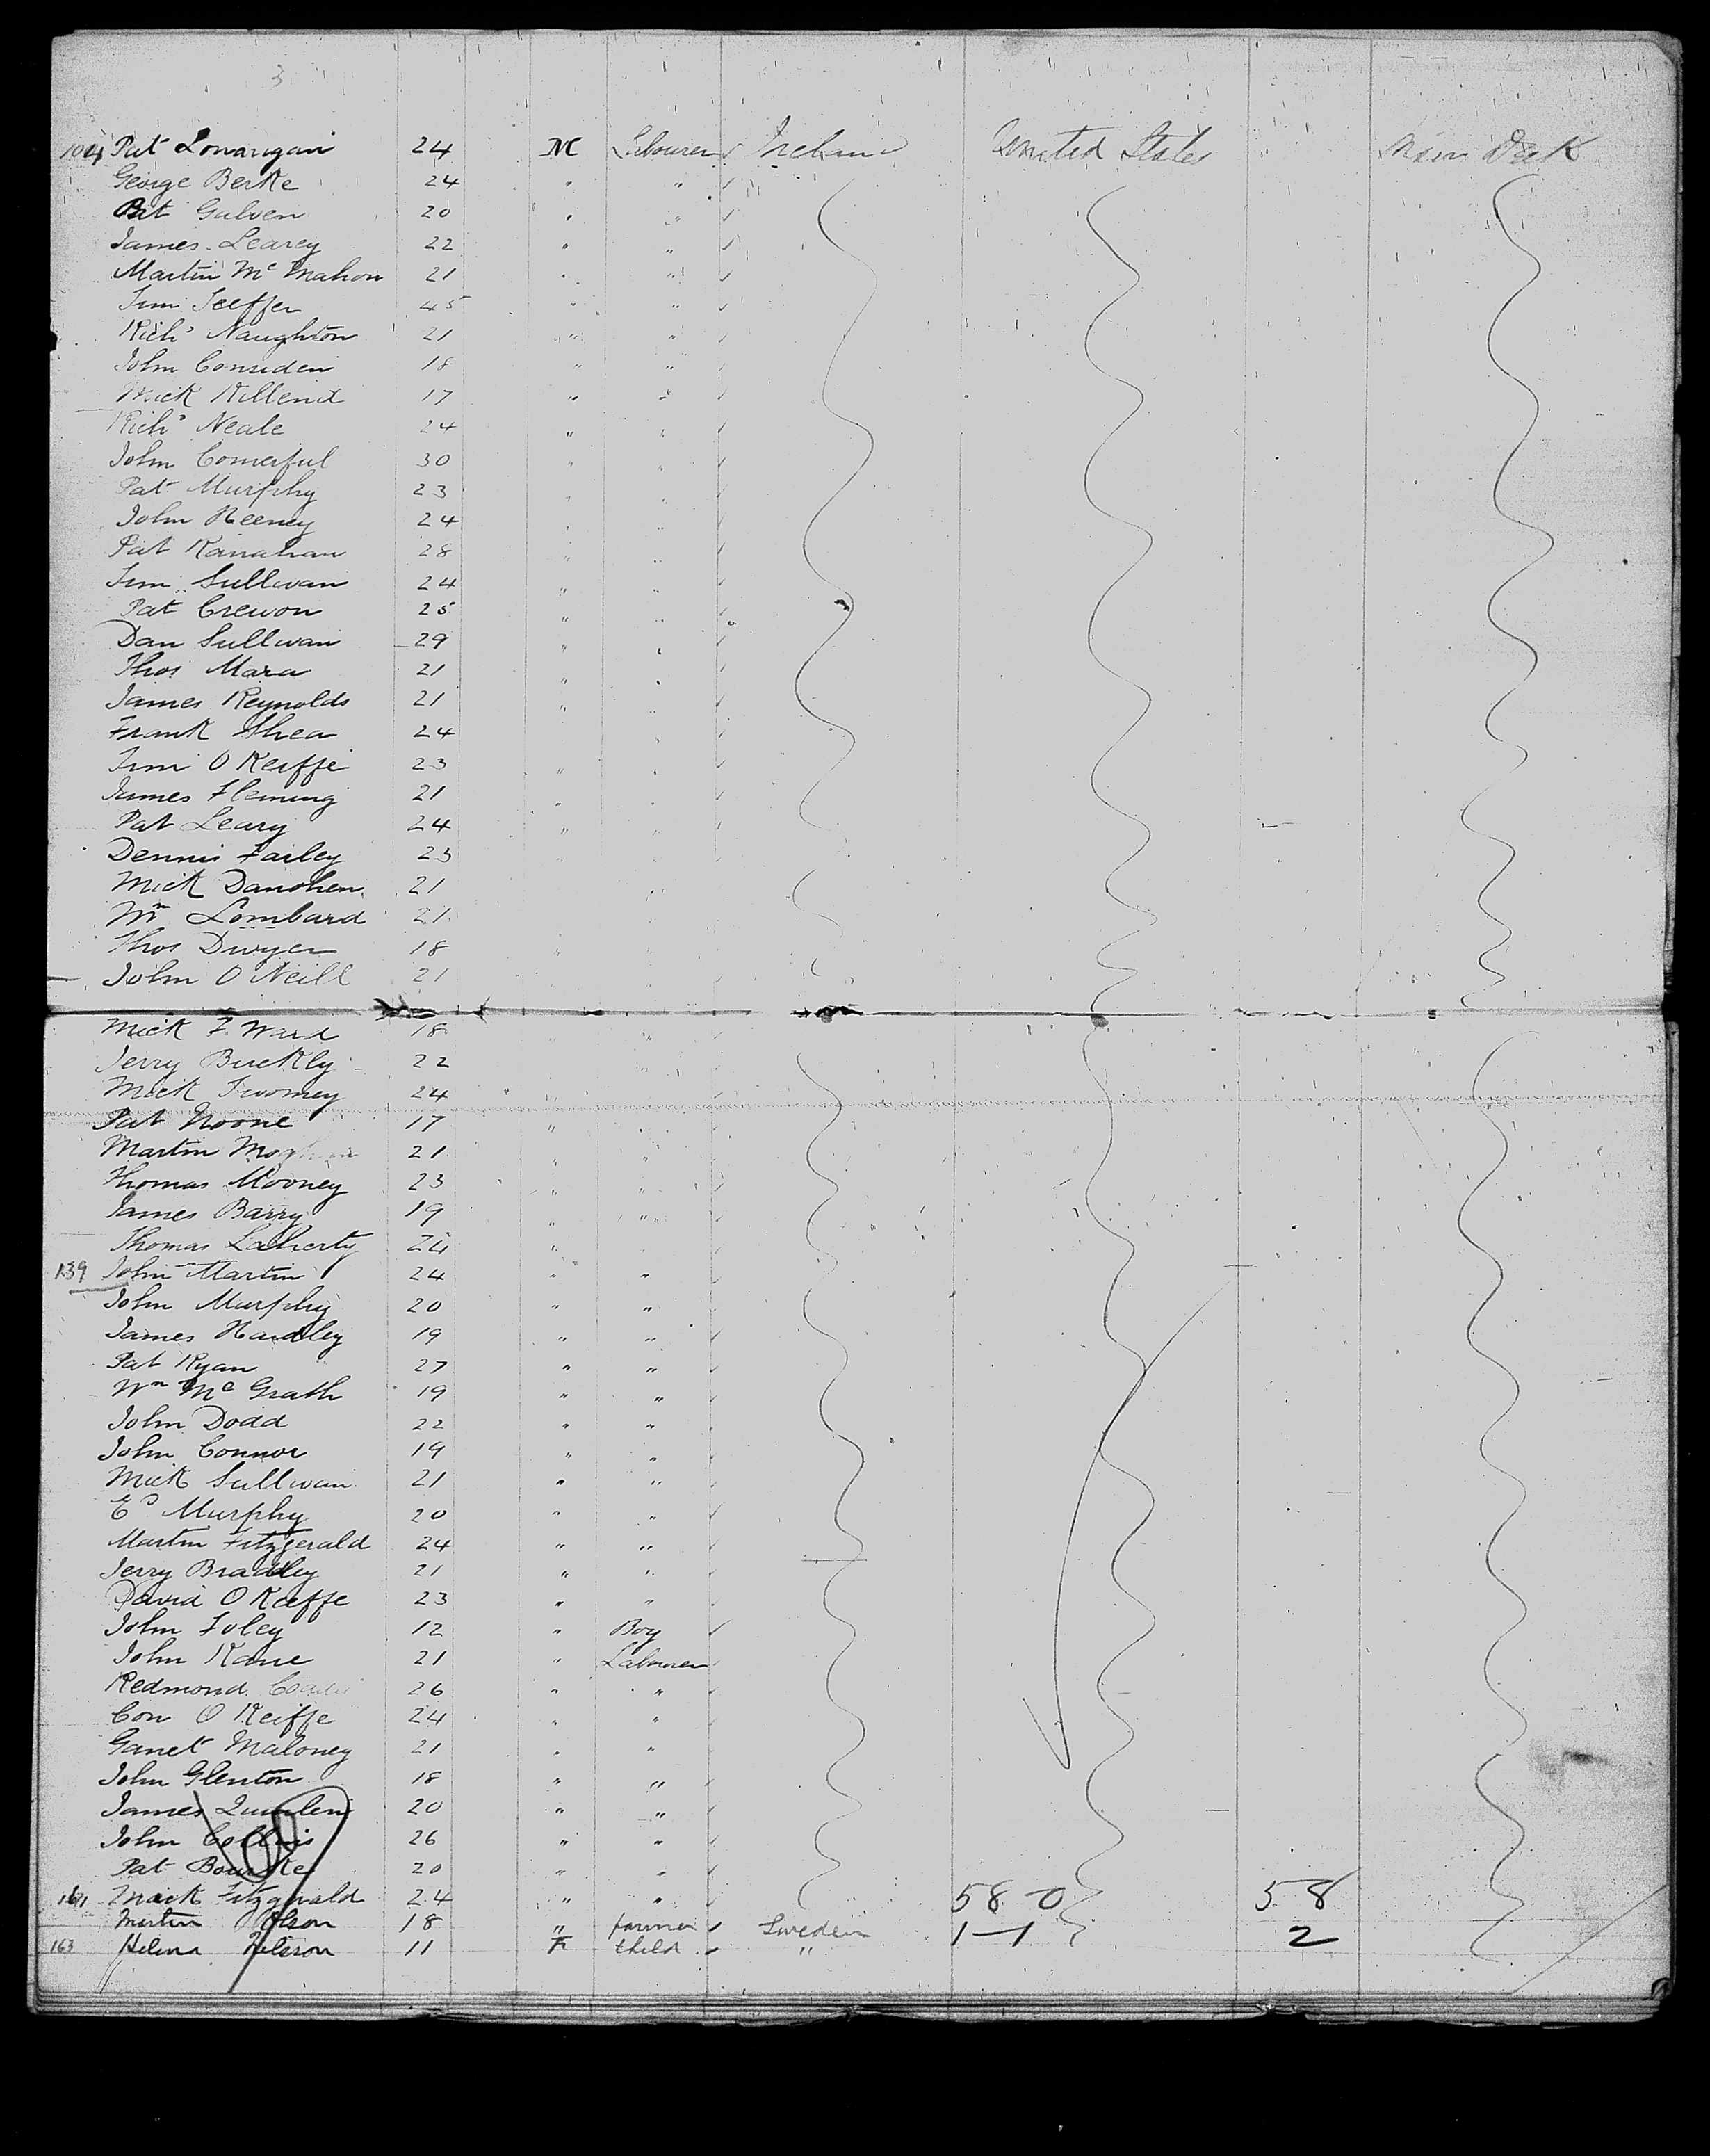 3
104 Pat Lonargan 24 M Labourer Ireland United States Main Deck
George Berke 24 " "
Pat Galven 20 " "
James Learey 22 " "
Martin Mc Mahon 21 " "
45 " "
Richd Naughton 21 " "
John Considen 18 " "
Mick Killend 17 " "
Richd Neale 24 " "
John Comerful 30 " "
Pat Murphy 23 " "
John Heeney 24 " "
Pat Kanahan 28 " "
Jim Sullivan 24 " "
Pat Crewon 25 " "
Dan Sullivan 29 " "
Thos Mara 21 " "
James Reynolds 21 " "
Frank Shea 24 " "
Jim O Keiffe 23 " "
James Fleming 21 " "
Pat Leary 24 " "
Dennis Farley 23 " "
Mick Danohen 21 "
Wm Lombard 21 "
Thos Dwyer 18 "
John O Neill 21
Mick F. Ward 18 "
Jerry Buckly 22 "
Mick Twomey 24 "
Pat Noone 17 "
Martin 21 " "
Thomas Mooney 23 " "
James Barry 19 " "
Thomas Laherty 24 " "
139 John Martin 24 " "
John Murphy 20 " "
James Handley 19 " "
Pat Ryan 27 " "
Wm Mc Grath 19 " "
John Dodd 22 " "
John Connor 19 " "
Mick Sullivan 21 " "
Ed Murphy 20 " "
Martin Fitzgerald 24 " "
Jerry Bradley 21 " "
David O Keeffe 23 " "
John Foley 12 " Boy
John Kane 21 " Labourer
Redmond 26 " "
Con O Keiffe 24 " "
Garret Maloney 21 " "
John Glenton 18 " "
James Quinlen 20 " "
John Collins 26 " "
Pat Bourke 20 " "
161 Mick Fitzgerald 24 " " 58 0 58
Martin Olson 18 " farmer Sweden 1 - 1 2
163 Helena Nelsson 11 F child "